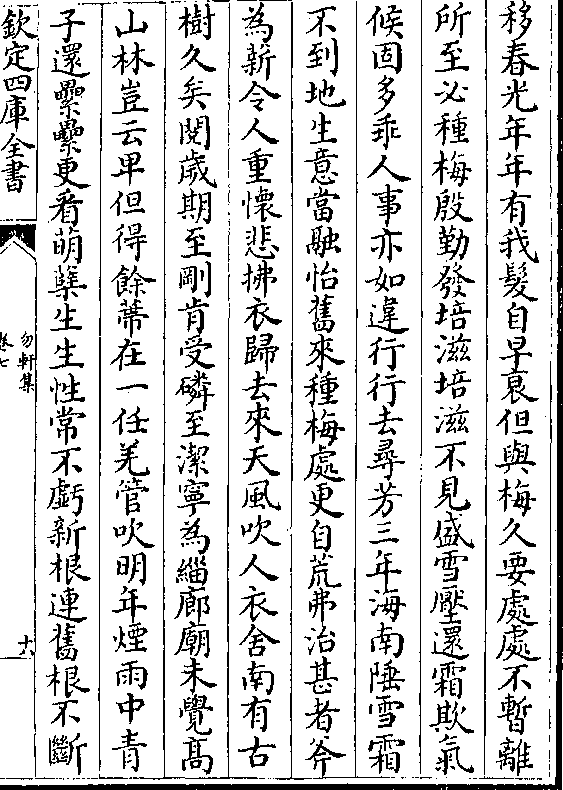 移春光年年有我髮自早衰但與梅久要處處不暫離
所至必種梅殷勤發培滋培滋不見盛雪壓還霜欺氣
候固多乖人事亦如違行行去尋芳三年海南陲雪霜
不到地生意當融怡舊來種梅處更自荒弗治甚者斧
為薪令人重懷悲拂衣歸去來天風吹人衣舍南有古
樹久矣閱歲期至剛肯受磷至潔寧為緇廊廟未覺髙
山林豈云卑但得餘蔕在一任羌管吹明年煙雨中青
子還纍纍更看萌櫱生生性常不虧新根連舊根不斷
欽定四庫全書
勿軒集
卷七
十六